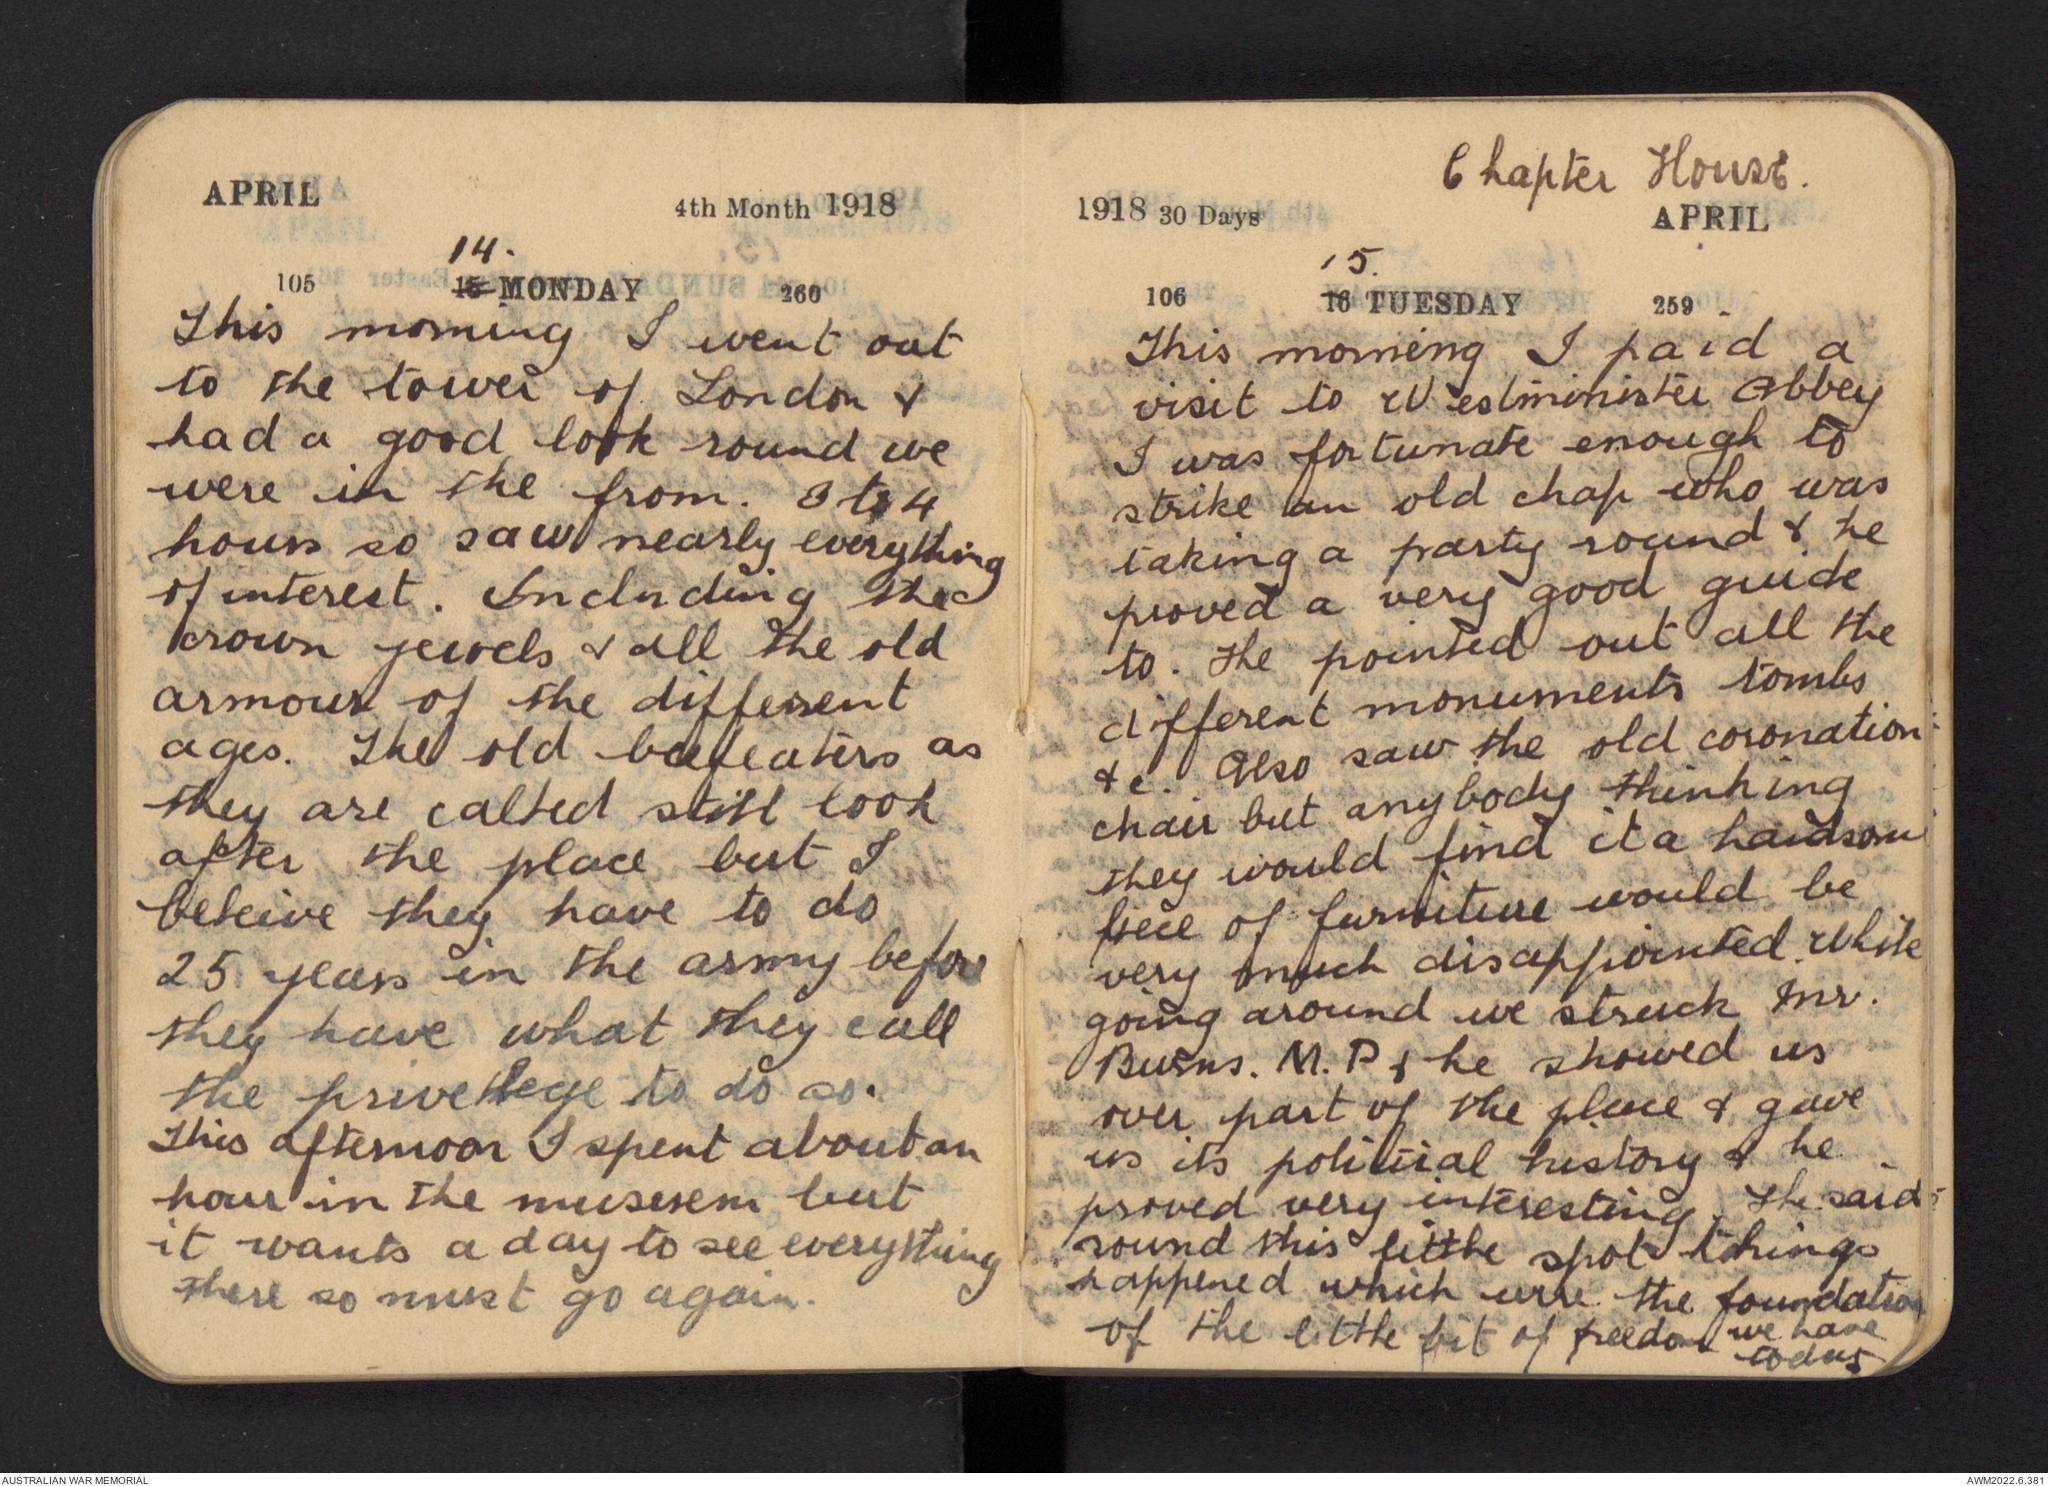 APRIL 4th Month 1918
14.
105 15 MONDAY 260
This morning I went out
to the tower of London &
had a good look round we
were in the from. 3 to 4
hours so saw nearly everything
of interest. Including the
crown jewels & all the old
armour of the different
ages. The old beefeaters as
they are called still look
after the place but I
beleive they have to do
25 years in the army before
they have what they call
the privelege to do so.
This afternoon I spent about an
hour in the museum but
it wants a day to see everything
there so must go again.
Chapter House.
1918 30 Days APRIL
15.
106 16 TUESDAY 259
This morning I paid a
visit to Westminister Abbey
I was fortunate enough to
strike an old chap who was
taking a party round & he
proved a very good guide
to. He pointed out all the
different monuments tombs
&c. Also saw the old coronation
chair but anybody thinking
they would find it a handsom
piece of furniture would be
very much disappointed. While
going around we struck Mr.
Burns. M.P & he showed us
over part of the place & gave
us its political history & he
proved very interesting. He said
round this little spot things
happened which were the foundation
of the little bit of freedom we have
today
AUSTRALIAN WAR MEMORIAL
AWM2022.6.381